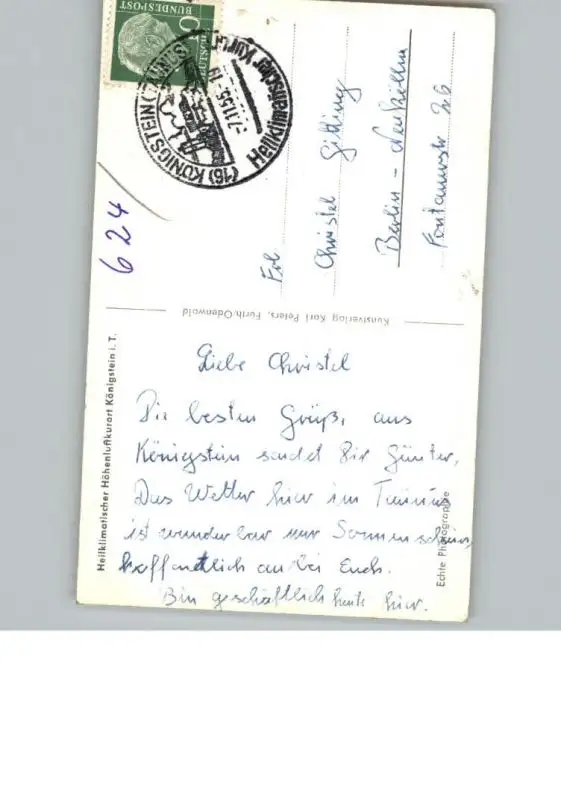 Liebe Christel
Die besten Grüß, aus
Königstein sendet Dir Günter,
Das Wetter hier im Taunus
ist wunderbar nur Sonnenschein,
hoffentlich au bei Euch.
Bin geschäftlich heute hier.
Frl
Christel
Berlin - Neukölln
Fontanestr 26
624
Heilklimatischer Höhenluftkurort Königstein i. T.
Kunstverlag Karl Peters, Fürth/Odenwald
Echte Photographie
BUNDESPOST
(16) KÖNIGSTEIN (TAUNUS)
Heilklimatischer Kurort